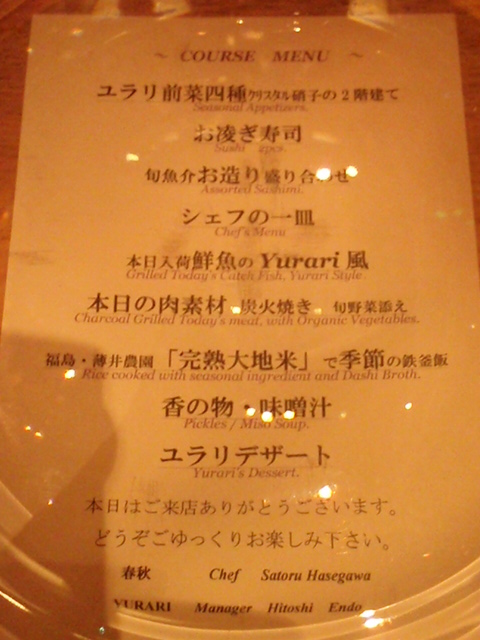 ～ COURSE MENU ～
ユラリ前菜四種クリスタル硝子の2階建て
Seasonal Appetizers.
お凌ぎ寿司
Sushi 2pcs.
旬魚介お造り盛り合わせ
Assorted Sashimi.
シェフの一皿
Chef's Menu
本日入荷鮮魚のYurari風
Grilled Today's Catch Fish, Yurari Style
本日の肉素材、炭火焼き 旬野菜添え
Charcoal Grilled Today's meat, with Organic Vegetables.
福島・薄井農園「完熟大地米」で季節の鉄釜飯
Rice cooked with seasonal ingredient and Dashi Broth.
香の物・味噌汁
Pickles / Miso Soup.
ユラリデザート
Yurari's Dessert.
本日はご来店ありがとうございます。
どうぞごゆっくりお楽しみ下さい。
春秋 Chef Satoru Hasegawa
YURARI Manager Hitoshi Endo